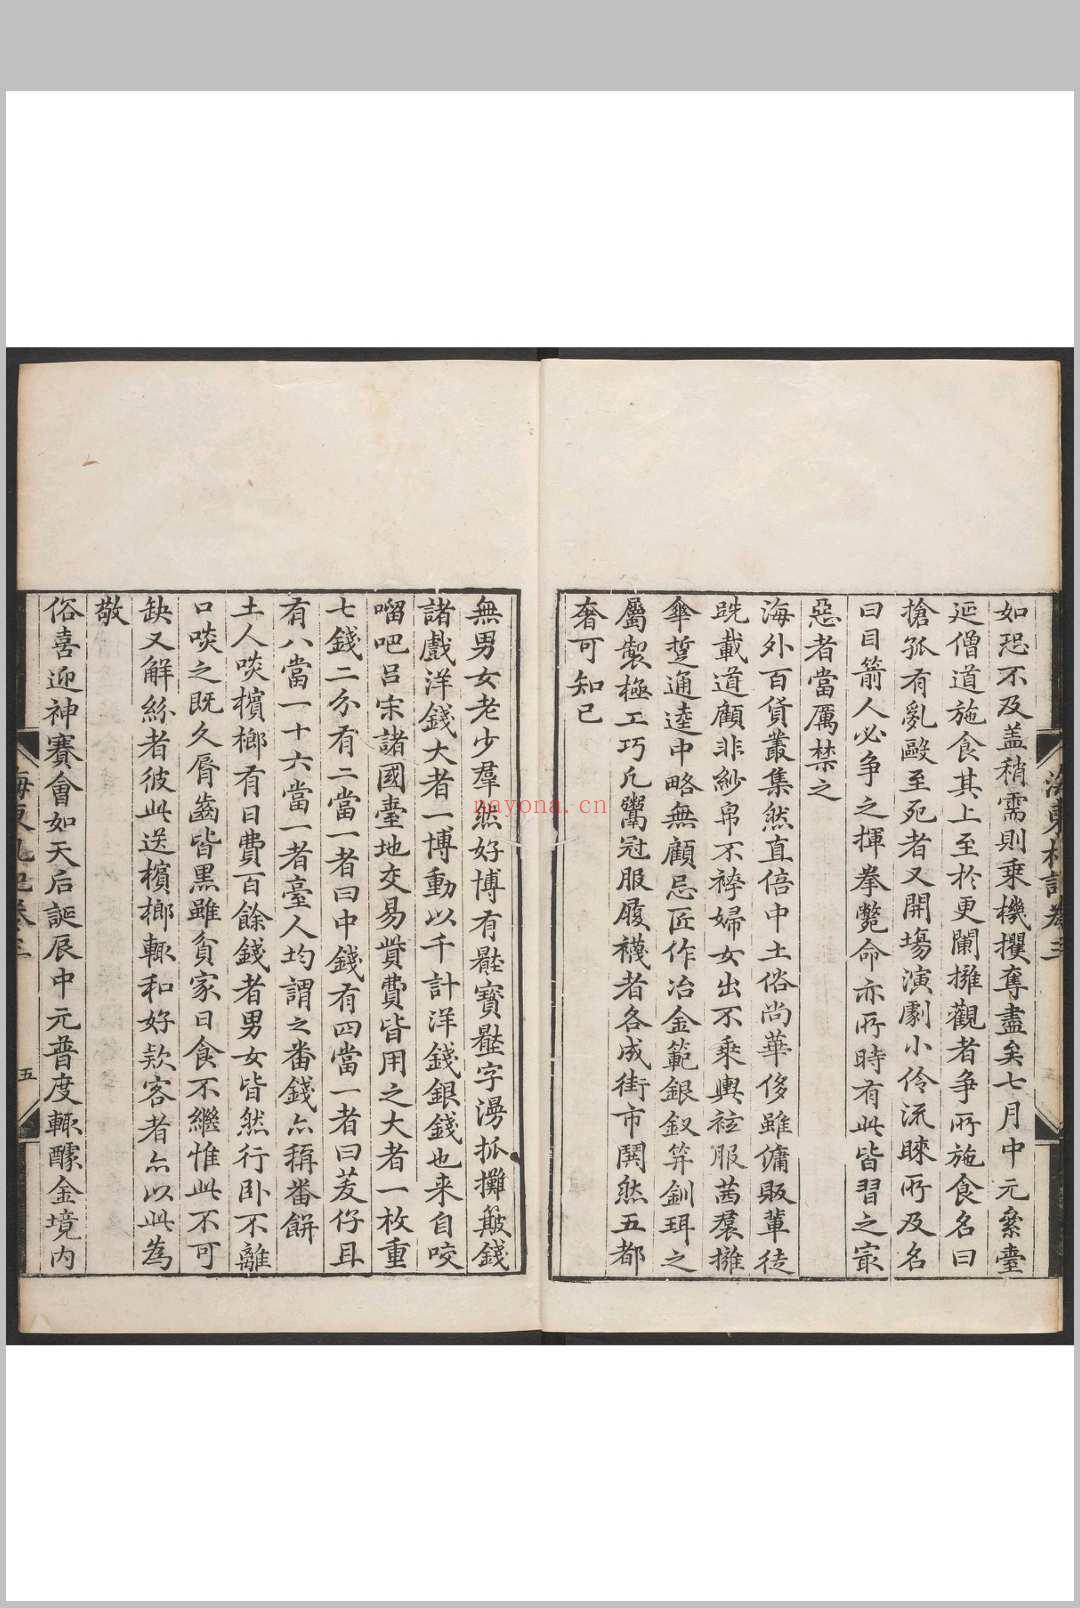 如恐不及盖稍需則乗機攫奪盡矣七月中元叅臺
延僧道施食其上至於更闌擁觀者争所施食名曰
搶孤有亂毆至死者又開塲演劇小伶流睞所及名
曰目箭人必争之揮拳斃命亦所時有此皆習之㝡
惡者當厲禁之
海外百貨叢集然直倍中土俗尚華侈雖傭販輩徒
跣載道顧非紗帛不袴婦女出不乗輿袨服茜裙擁
傘踅通逵中略無顧忌匠作冶金範銀釵笄釧珥之
屬製極工巧凡鬻冠服履襪者各成街市鬨然五都
奢可知已
無男女老少羣然好博有壓寶壓字漫抓攤簸錢
諸戲洋錢大者一博動以千計洋錢銀錢也来自咬
𠺕吧吕宋諸國臺地交易貲費皆用之大者一枚重
七錢二分有二當一者曰中錢有四當一者曰茇仔且
有八當一十六當一者臺人均謂之番錢亦稱番餅
土人啖檳榔有日費百餘錢者男女皆然行卧不離
口啖之既久脣齒皆黒雖貧家日食不繼惟此不可
缺又解紛者彼此送檳榔輒和好欵客者亦以此為
敬
俗喜迎神賽會如天后誕辰中元普度輒醵金境内
海東札記卷三
五
nayona.cn